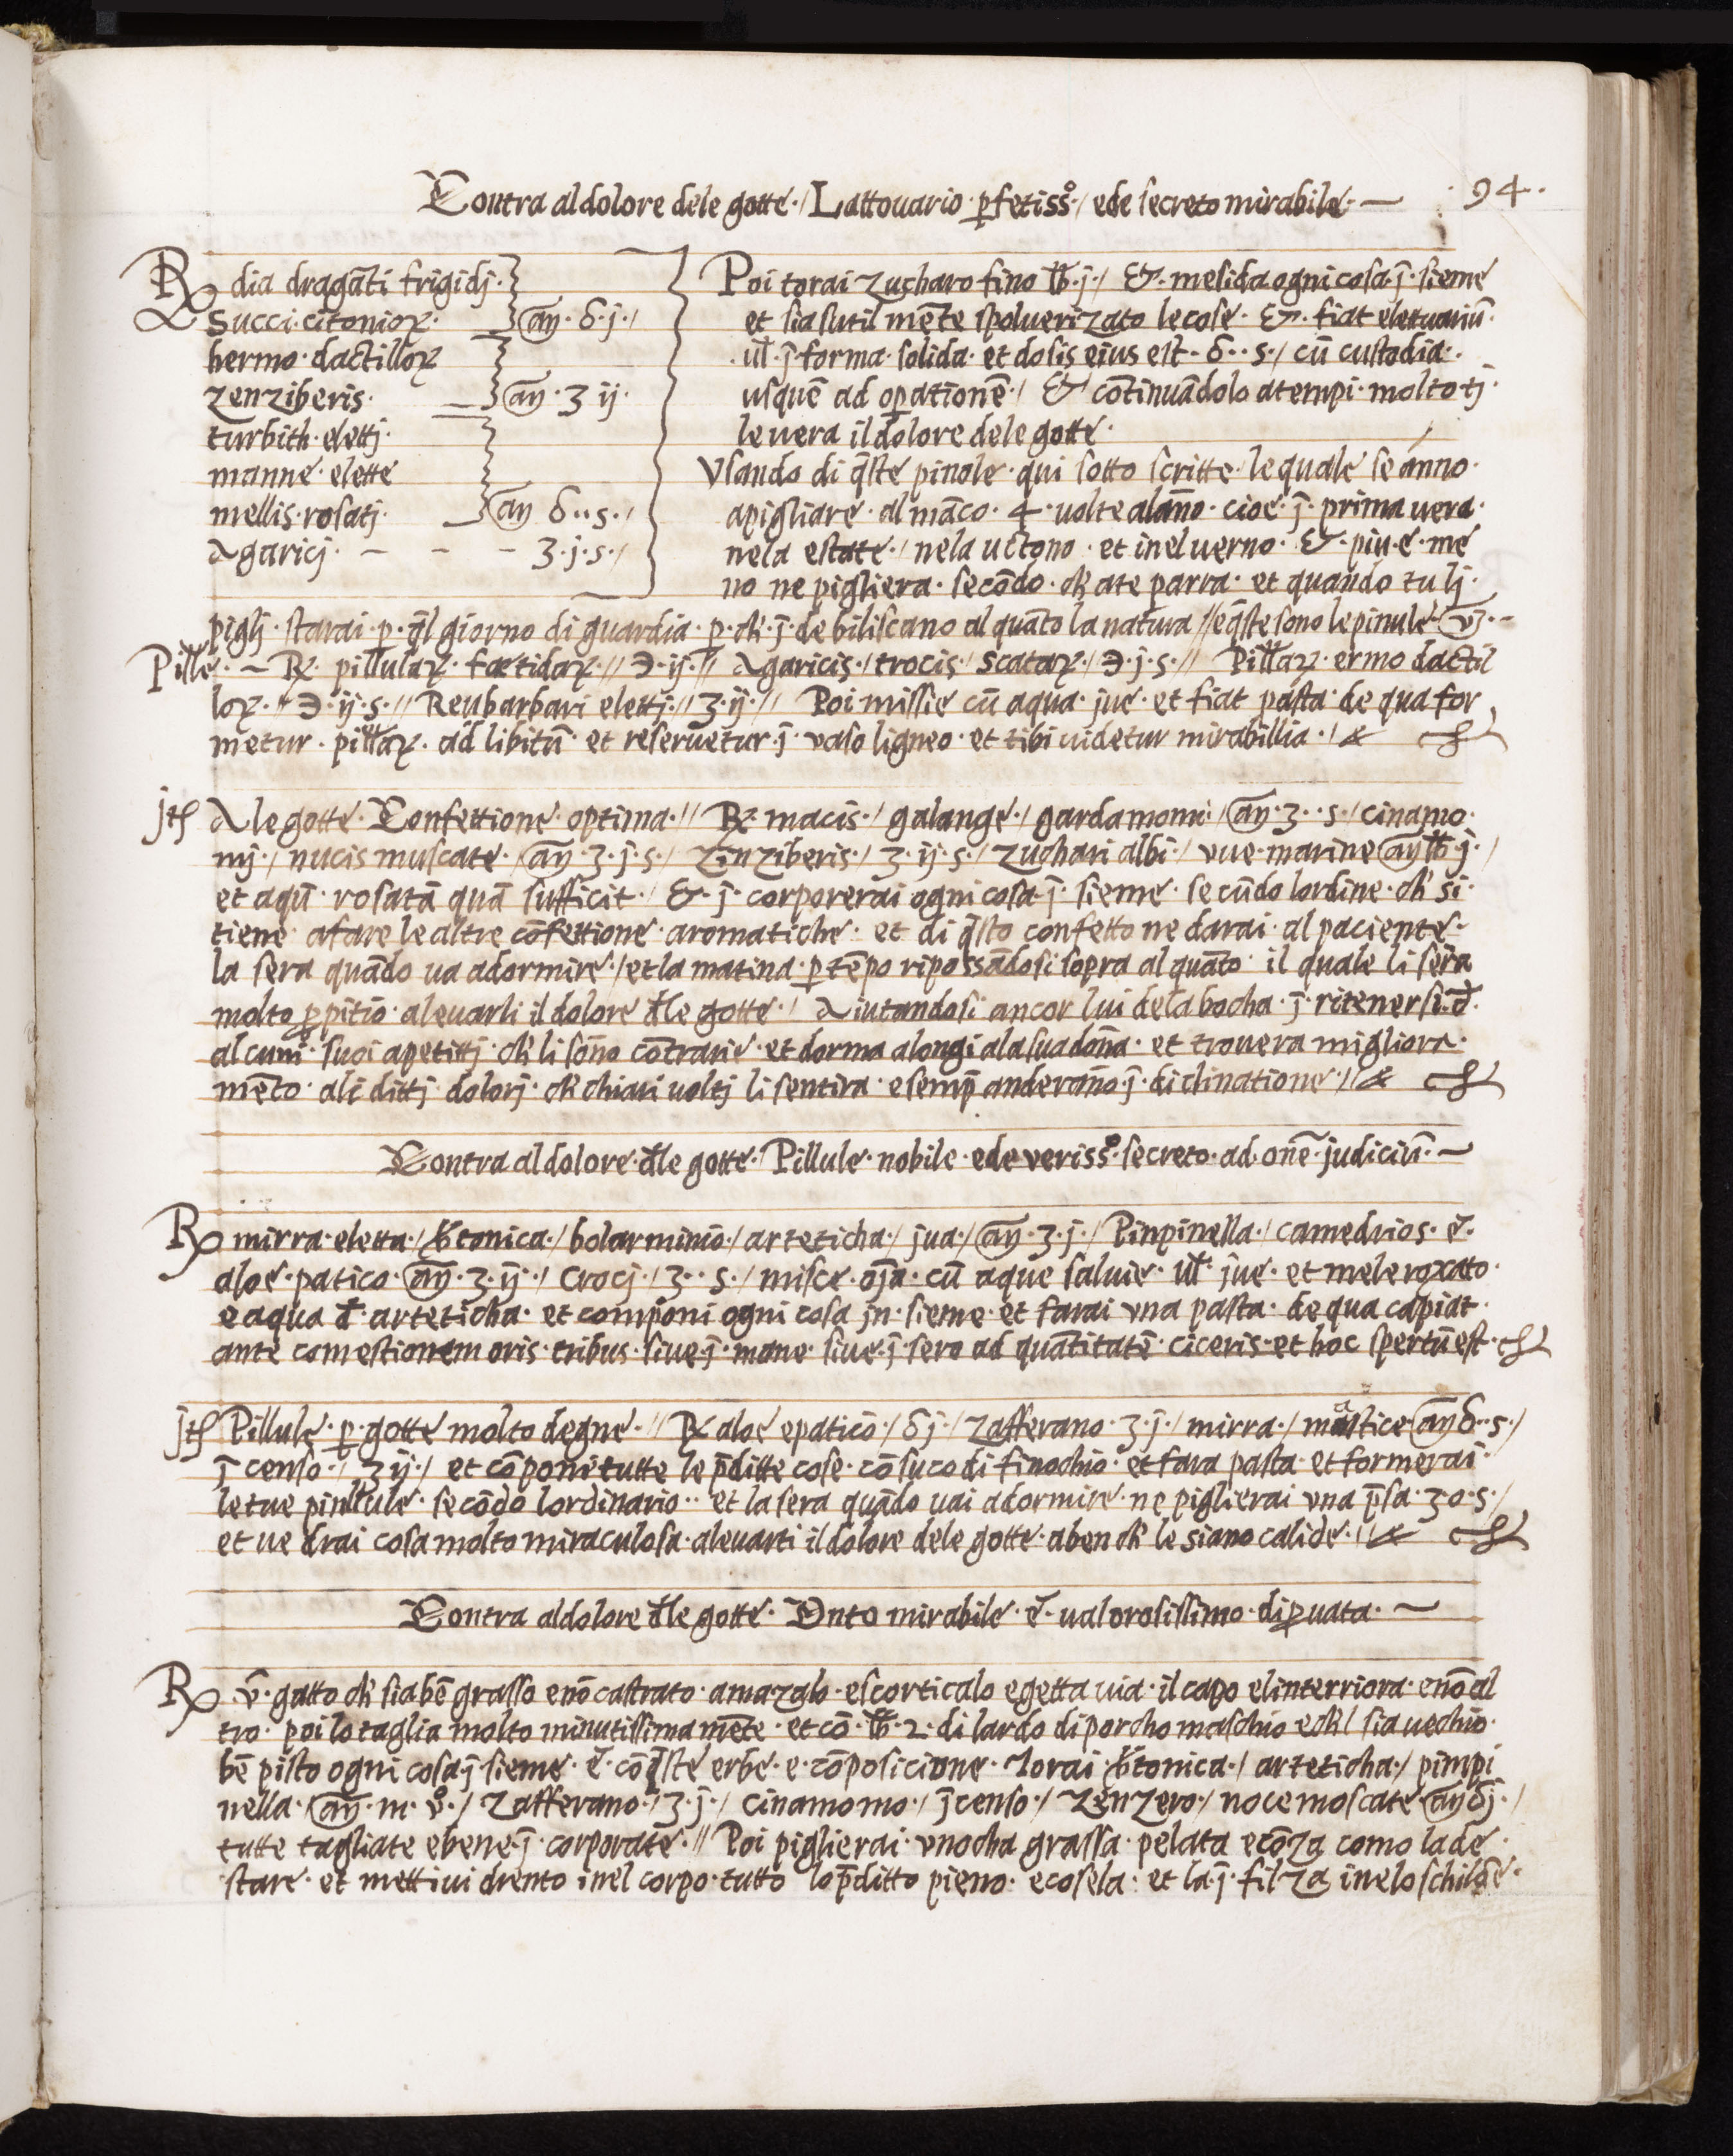 Contra al dolore dele gotte · / Lattouario · p̱fetiss̊ · / ede secreto mirabile · —
· 94 ·
℞ dia dragāti frigidj ·
Succi · citonioꝝ · a͞n · δ · j · /
hermo · dactilloꝝ
zenziberis · a͞n · ʒ ij ·
turbith · elettj ·
manne · elette
mellis · rosatj · a͞n δ · · s · /
Agaricj · – – – ʒ · j · s · /
Poi torai zucharo fino lb̄ · j · / & · mesida ogni cosa · j̄ · sieme
et sia sutil mēte spoluerizato le cose · & · fiat elettuariū ·
· ul̄ · j̄ · forma · solida · et dosis eius est · δ · · s · / cū custodia ·
usquē ad oꝑationē · / & cōtinuādolo atempi · molto tj ·
leuera il dolore dele gotte ·
Vsando di q̄ste pinole · qui sotto scritte · le quale se ānno ·
apigliare · al māco · 4 · uolte alāno · cioe · j̄ · prima uera ·
nela estate · / nela uctono · et inel uerno · & · piu · e · me
no ne pigliera · secōdo · cħ ate parra · et quando tu lj ·
piglj · starai · p · q̄l giorno di guardia · p · cħ · j̄ · de biliscano al quāto la natura // e q̄ste sono le pinule · vȷ̄ · –
Pille · – ℞ · pillulaꝝ · fœtidaꝝ · // ℈ · ij · // Agaricis · / trocis · / scataꝝ · / ℈ · j · s · // Pill̄aꝝ · ermo dactil
loꝝ · // ℈ · ij · s · // Reubarbari elettj · // ʒ · ij · // Poi missie cū aqua · jue · et fiat pasta · de qua for
metur · pill̄aꝝ · ad libitū · et reseruetur · j̄ · vaso ligneo · et tibi uidetur mirabillia · /
jtħ Ale gotte · Confettione · optima · // ℞ · macis · / galange · / gardamomi · / a͞n · ʒ · · s · / cinamo
mj · / nucis muscate · / a͞n · ʒ · j · s · / zinziberis · / ʒ · ij · s · / zuchari albi · / vue · marine a͞n lb̄ · j · /
et aqū · rosatā quā sufficit · / & · j̄ · corporerai ogni cosa · j̄ · sieme · se cūdo lordine · cħ si ·
tiene · afare le altre cōfettione · aromatiche · et di q̄sto confetto ne darai · al paciente ·
la sera quādo ua adormire · / et la matina · ꝑ tēpo ripossādosi sopra al quāto · il quale li sera
molto ꝓpitio · aleuarli il dolore d̄le gotte · / Aiutandosi ancor lui dela bocha · j̄ · ritenersi · d̄ ·
alcuni · suoi apetittj · cħ li sōno cōtrarie · et dorma alongi ala sua dōna · et trouera migliora ·
mēto · ali dittj dolorj · cħ chiari uoltj li sentira · e semꝑ anderāno · j̄ · diclinatione · //
Contra al dolore · d̄le gotte · Pillule · nobile · ede veriss̊ · secreto · ad · onē · judiciū · —
℞ mirra · eletta · / b̄tonica · / bolarminio · / arteticha · / jua · / a͞n · ʒ · j · / Pinpinella · / camedrios · ē ·
aloe · patico · a͞n · ʒ · ij · / Crocj · / ʒ · · s · / misce · oj̄a · cū aque saluie · ul̄ · jue · et mele roxatto ·
e aqua d̄ · arteticha · et componi ogni cosa jn · sieme · et farai vna pasta · de qua capiat ·
ante comestionem oris · tribus · siue · j̄ · mane · siue · j̄ · sero ad quātitatē · ciceris · et hoc spertū est ·
jtħ Pillule · ꝑ · gotte molto degne · // ℞ aloe epaticō · / δ j · / zafferano · ʒ · j · / mirra · / mastice · a͞n δ · · s · /
j̄ censo · / ʒ ij · / et cōponi tutte le p̄ditte cose · cō suco di finochio · et fara pasta · et formerai ·
le tue pinllule · secōdo lordinario · · et la sera quādo uai adormire · ne piglierai vna p̄sa · ʒ o · s · /
et ue drai cosa molto miraculosa · aleuarti il dolore dele gotte · aben cħ le siano calide · //
Contra al dolore d̄le gotte · Onto mirabile · ē · ualorosissimo · di ꝓuata · —
℞ v̄ · gatto cħ sia bē grasso e nō castrato · amazalo · escorticalo e getta uia · il capo el interriora · e nō al
tro · poi lo taglia molto minutissima mēte · et cō · lb̄ · 2 · di lardo di porcho maschio e cħl sia uechio ·
bē pisto ogni cosa · j̄ sieme · ē · cō q̄ste erbe · e · cōposicione · Torai · b̄tonica · / arteticha · / pimpi
nella · a͞n · m · v̊ · / zafferano · / ʒ · j · / cinamomo · / j̄censo · / zenzero · / noce moscate · a͞n δ j · /
tutte tagliate e bene · j̄ · corporate · // Poi piglierai · vnocha grassa · pelata e cōza como la de ·
stare · et mettiui drento inel corpo · tutto lo p̄ditto pieno · e cosela · et la · j̄ · filza inelo schildē ·